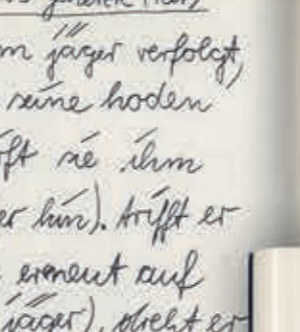 jäger verfolgt,
seine hoden
sie ihm
er hin). trifft er
erneut auf
jäger), dreht er